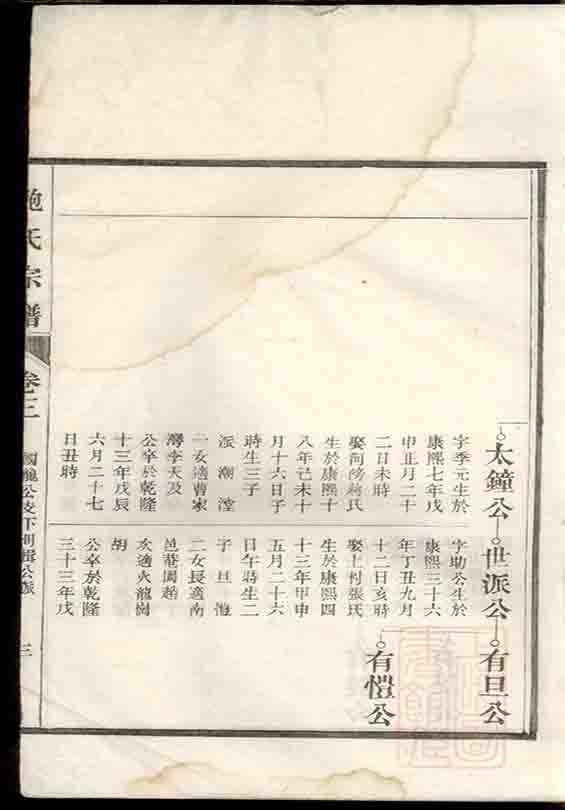 太鐘公 世派公 有旦公
有愷公
字季元生於
康熙七年戊
申正月二十
二日未時
娶河傍 氏
生於康熙十
八年己未十
月十六日子
時生三子
派 潮 瀅
一女適曹家
灣李天及
公卒於乾隆
十三年戊辰
六月二十七
日丑時
字助公生於
康熙三十六
年丁丑九月
十二日亥時
娶上村張氏
生於康熙四
十三年甲申
五月二十六
日午時生二
子 旦 愷
二女長適南
邑巷 趙
次適火龍崗
胡
公卒於乾隆
三十三年戊
鮑氏宗譜
卷三
公支下 楫公派
三